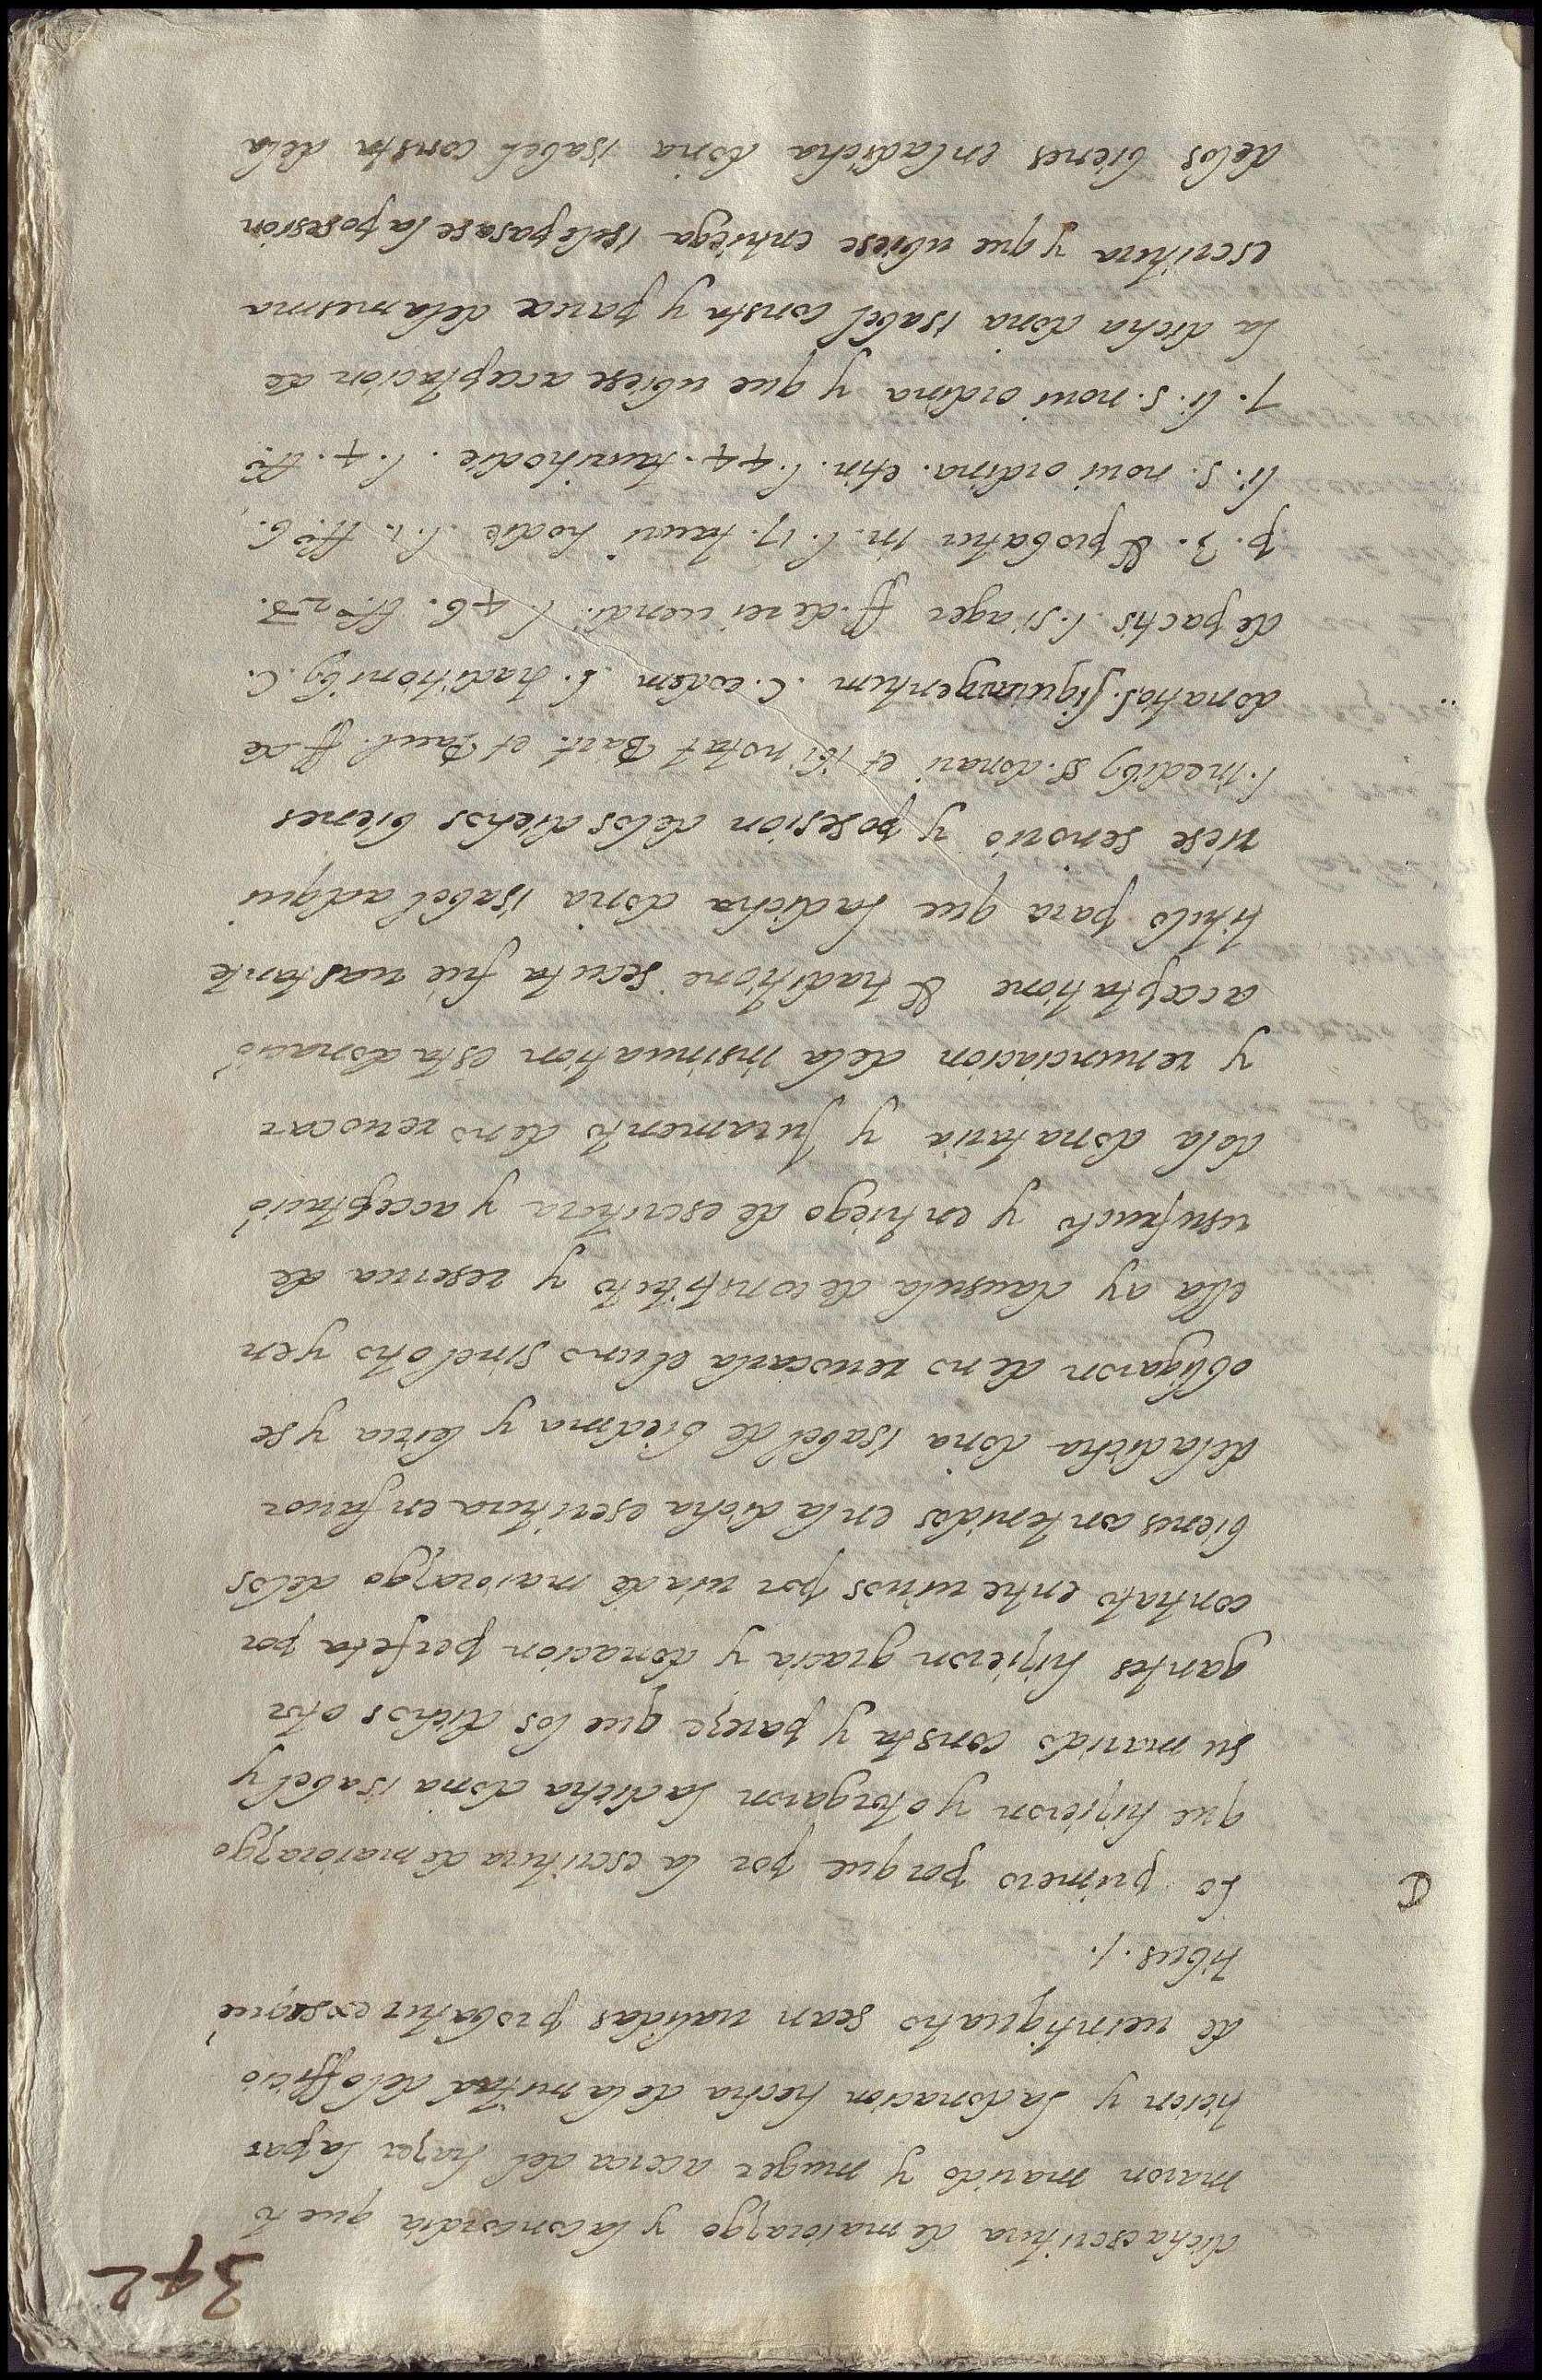 342
dicha escritura de maiorazgo y la concordia que to
maron marido y muger acerca del hazer la par
ticion y la donacion hecha de la mitad del officio
de ueintiquatro sean ualidas probatur ex sequē
tibus ./.
Lo primero porque por la escritura de maiorazgo
que hizieron y otorgaron la dicha doña isabel y
su marido consta y pareze que los dichos otor
gantes hizieron gracia y donacion perfeta por
contrato entre uiuos por uia de maiorazgo de los
bienes contenidos en la dicha escritura en fauor
de la dicha doña isabel de biedma y leiua y se
obligaron de no reuocarla el uno sin el otro y en
ella ay clausula de constituto y reserua de
usufructo y entriego de escritura y acceptaciō
de la donataria y juramento de no reuocar
y renunciacion de la insinuation esta donaciō
acceptatione & traditione secuta fue uastante
titulo para que la dicha doña isabel adqui
riese senorio y posesion de los dichos bienes
et ibi notat Bart. et Paul. ff. de
donatio. l. si quis argentum . C. eodem l. traditionibg C.
de pactis l. si ager ff. de rei uendi. l. 46. tt.º 28.
p. 3. & probatur in. l. 17. tauri hodie l. 1. tt.º 6.
li. 5. noui ordina. et in. l. 44. tauri hodie . l. 4. tt.º
7. li. 5. noui ordina y que ubiese acceptacion de
la dicha doña isabel consta y parece de la mesma
escritura y que ubiese entriega i se le pasase la posesion
de los bienes en la dicha doña isabel consta de la